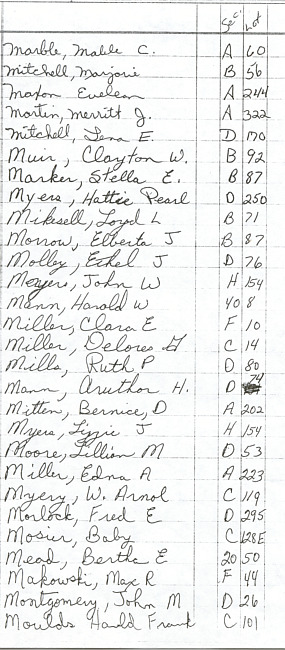 Sec. Lot
Marble, Malile C. A 60
Mitchell, Marjorie B 56
Maxon Evelean A 244
Martin, Merritt J. A 322
Mitchell, Lena E. D 170
Muir, Clayton W. B 92
Marker, Stella E. B 87
Myers, Hattie Pearl D 250
Mikesell, Loyd L B 71
Morrow, Elberta J B 87
Molley, Ethel J D 76
Meyers, John W H 154
Mann, Harold W 40 8
Miller, Clara E F 10
Miller, Delores G C 14
Mills, Ruth P D 80
Mann, Aruthor H. D 74
Mitten, Bernice, D A 202
Myers, Lizzie J H 154
Moore, Lillian M D 53
Miller, Edna A A 223
Myery, W. Arnol C 119
Morlock, Fred E D 295
Mosier, Baby C 128E
Mead, Bertha E 20 50
Makowski, Max R F 44
Montgomery, John M D 26
Moulds Harold Frank C 101